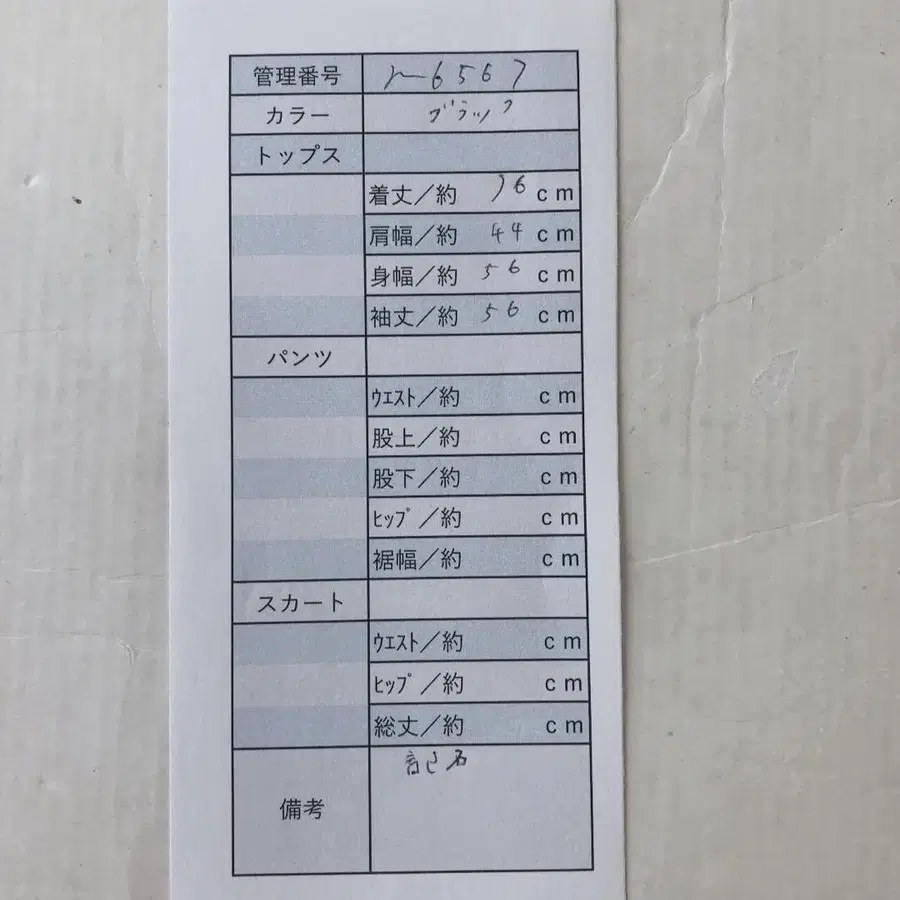 管理番号 m6567
カラー ブラック
トップス
着丈／約 76 cm
肩幅／約 44 cm
身幅／約 56 cm
袖丈／約 56 cm
パンツ
ｳｴｽﾄ／約 cm
股上／約 cm
股下／約 cm
ﾋｯﾌﾟ／約 cm
裾幅／約 cm
スカート
ｳｴｽﾄ／約 cm
ﾋｯﾌﾟ／約 cm
総丈／約 cm
備考 記名